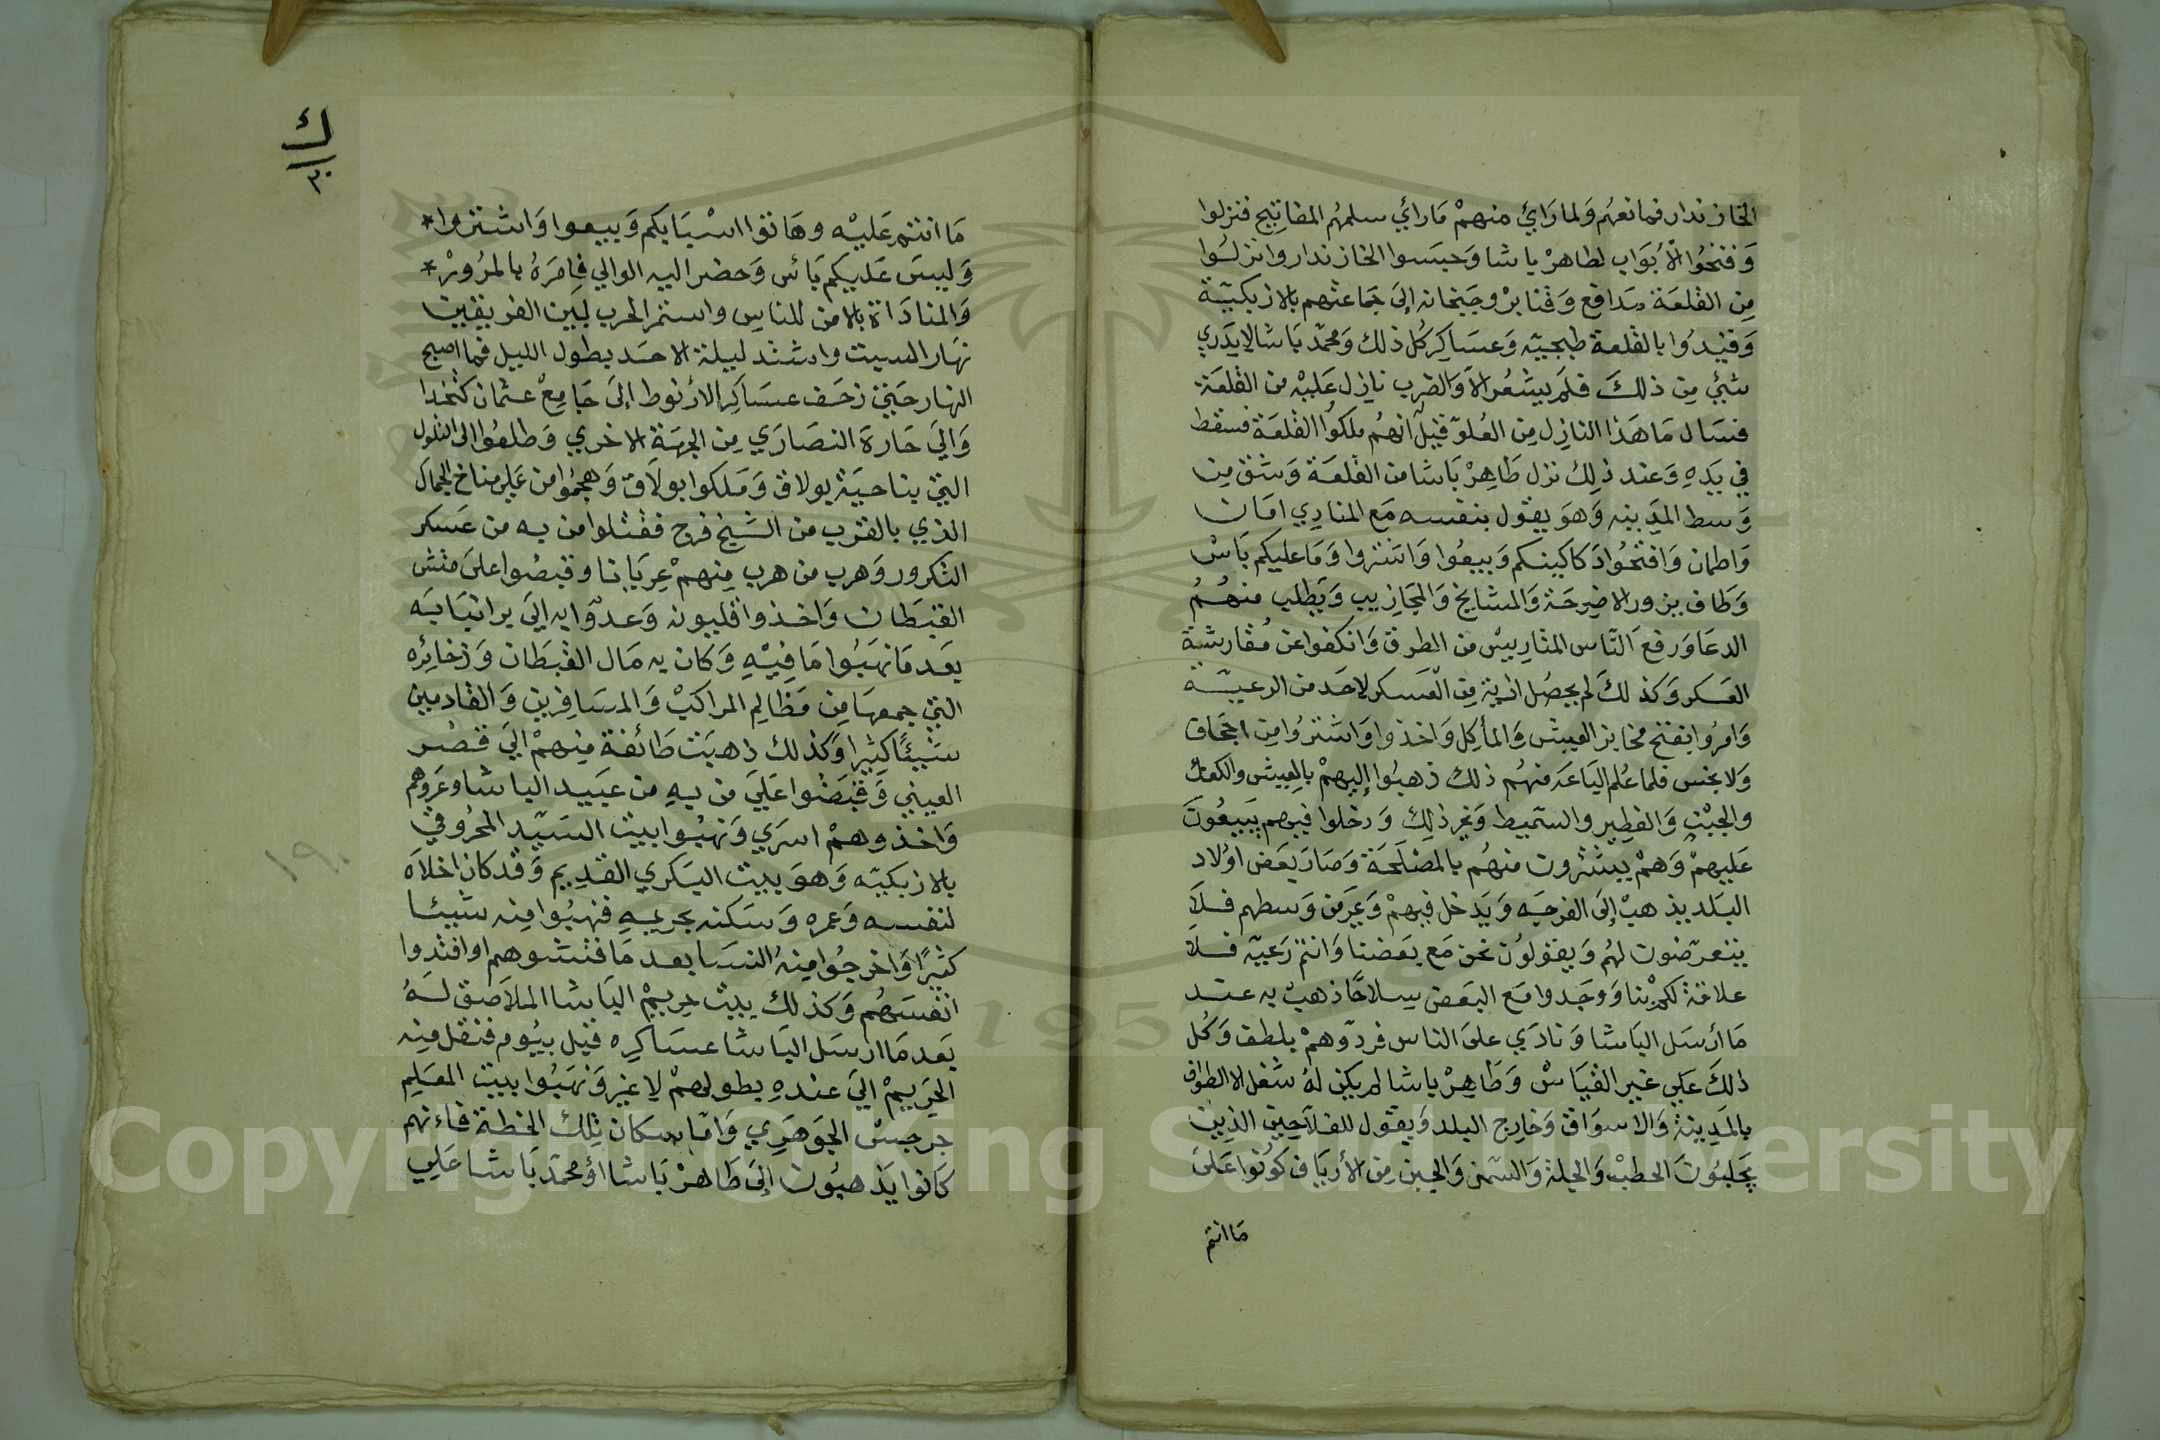 الخازندار فمانعهم ولما رأي منهم ما رأي سلمهم المفاتيح فنزلوا
وفتحوا الأبواب لطاهر باشا وحبسوا الخازندار وانزلوا
من القلعة مدافع وقنابر وجبخانه إلى جماعتهم بالازبكية
وقيدوا بالقلعة طبجيه وعساكر كل ذلك ومحمد باشا لايدري
شئ من ذلك فلم يشعر الا والضرب نازل عليه من القلعة
فسال ما هذا النازل من العلو قيل انهم ملكوا القلعة فسقط
في يده وعند ذلك نزل طاهر باشا من القلعة وشق من
وسط المدينه وهو يقول بنفسه مع المنادي امان
واطمان وافتحوا دكاكينكم وبيعوا واشتروا وما عليكم باس
وطاف يزور الاضرحة والمشايخ والمجازيب ويطلب منهم
الدعا ورفع الناس المتاريس من الطرق وانكفوا عن مقارشة
العسكر وكذلك لم يحصل اذية من العسكر لاحد من الرعية
وامروا بفتح مخابز العيش والمأكل واخذوا واشتروا من اجحاف
ولا بخس فلما علم الباعه منهم ذلك ذهبوا إليهم بالعيش والكعك
والجبن والفطير والسميط وغير ذلك ودخلوا فيهم يبيعون
عليهم وهم يشترون منهم بالمصلحة وصار بعض اولاد
البلد يذهب إلى الفرجه ويدخل فيهم ويمر من وسطهم فلا
يتعرضون لهم ويقولون نحن مع بعضنا وانتم رعيه فلا
علاقة لكم بنا ووجدوا مع البعض سلاحًا ذهب به عند
ما أرسل الباشا ونادي على الناس فردوهم بلطف وكل
ذلك علي غير القياس وطاهر باشا لم يكن له شغل الا الطواف
بالمدينة والاسواق وخارج البلد ويقول للفلاحين الذين
يجلبون الحطب والجلة والسمن والجبن من الأرياف كونوا على
ما انتم
ك
٣٠
ما انتم عليه وهاتوا اسبابكم وبيعوا واشتروا *
وليس عليكم بائس وحضر اليه الوالي فامره بالمرور *
والمناداة بالامن للناس واستمر الحرب بين الفريقين
نهار السبت واشتد ليلة الاحد بطول الليل فما اصبح
النهار حتي زحف عساكر الأرنوط إلى جامع عثمان كتخدا
والي حارة النصاري من الجهة الاخري وطلعوا الى التلول
التي بناحية بولاق وملكوا بولاق وهجموا من علي مناخ الجمال
الذي بالقرب من الشيخ فرج فقتلوا من به من عسكر
التكرور وهرب من هرب منهم عريانا وقبضوا على متش
القبطان واخذوا قليونه وعدوا به الي بر انبابه
بعد ما نهبوا ما فيه وكان به مال القبطان وذخائره
التي جمعها من مظالم المراكب والمسافرين والقادمين
شيئًا كثيرا وكذلك ذهبت طائفة منهم الي قصر
العيني وقبضوا علي من به من عبيد الباشا وعروهم
واخذوهم اسري ونهبوا بيت السيد المحروقي
بالازبكيه وهو بيت البكري القديم وقد كان اخلاه
لنفسه وعمره وسكنه بحريمه فنهبوا منه شيئا
كثيرًا واخرجوا منه النسا بعد ما فتشوهم او افتدوا
انفسهم وكذلك بيت حريم الباشا الملاصق له
بعد ما ارسل الباشا عساكره قبل بيوم فنقل منه
الحريم الي عنده بطولهم لا غير ونهبوا بيت المعلم
جرجس الجوهري واما سكان تلك الخطة فاءنهم
كانوا يذهبون إلى طاهر باشا اؤ محمد باشا علي
١٩٠
Copyright © King Saud University
1957